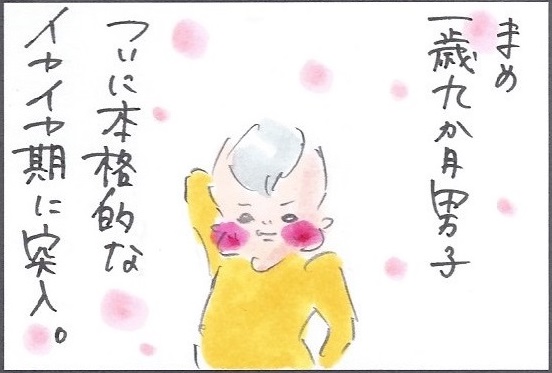 まめ
一歳九か月男子
ついに本格的な
イヤイヤ期に突入。